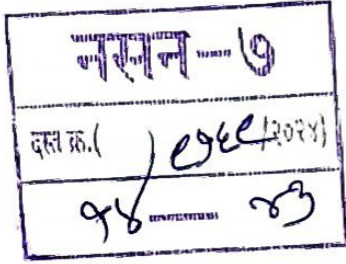 नसन - ७
दस्त क्र.( ) ८७६८/२०२४)
१४ ------ ४३